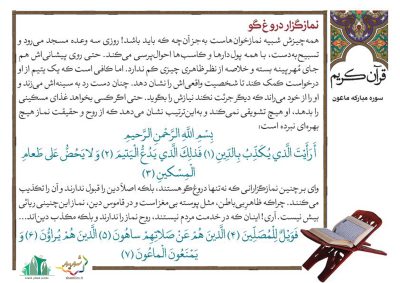 نمازگزار دروغ‌گو
همه‌چیزش شبیه نمازخوان‌هاست به‌جز آن‌چه که باید باشد! روزی سه وعده مسجد می‌رود و
تسبیح‌به‌دست، با همه پول‌دارها و کاسب‌ها احوال‌پرسی می‌کند. حتی روی پیشانی‌اش هم
جای مُهر پینه بسته و خلاصه از نظر ظاهری چیزی کم ندارد. اما کافی است که یک یتیم از او
درخواست کمک کند تا شخصیت واقعی‌اش را نشان دهد. چنان دست رد به سینه‌اش می‌زند و
او را از خود می‌راند که دیگر جرئت نکند نیازش را بگوید. حتی اگر کسی بخواهد غذای مسکینی
را بدهد، او هیچ تشویقی نمی‌کند و به‌این‌ترتیب نشان می‌دهد که از روح و حقیقت نماز هیچ
بهره‌ای نبرده است:
بِسْمِ اللَّهِ الرَّحْمنِ الرَّحیمِ
أَ رَأَیْتَ الَّذي یُکَذِّبُ بِالدِّینِ (۱) فَذلِكَ الَّذي یَدُعُّ الْیَتیمَ (۲) وَ لا یَحُضُّ عَلی طَعامِ
الْمِسْکینِ (۳)
وای بر چنین نمازگزارانی که نه‌تنها دروغ‌گو هستند، بلکه اصلاً دین را قبول ندارند و آن را تکذیب
می‌کنند. چراکه ظاهرِ بی‌باطن، مثل پوسته بی‌مغز است و در قاموس دین، نماز این‌چنینی ریائی
بیش نیست. آری! اینان که در خدمت مردم نیستند، روح نماز را ندارند و بلکه مکذب دین‌اند...
فَوَیْلٌ لِلْمُصَلِّینَ (۴) الَّذینَ هُمْ عَنْ صَلاتِهِمْ ساهُونَ (۵) الَّذینَ هُمْ یُراؤُنَ (۶) وَ
یَمْنَعُونَ الْماعُونَ (۷)
قرآن کریم
سوره مبارکه ماعون